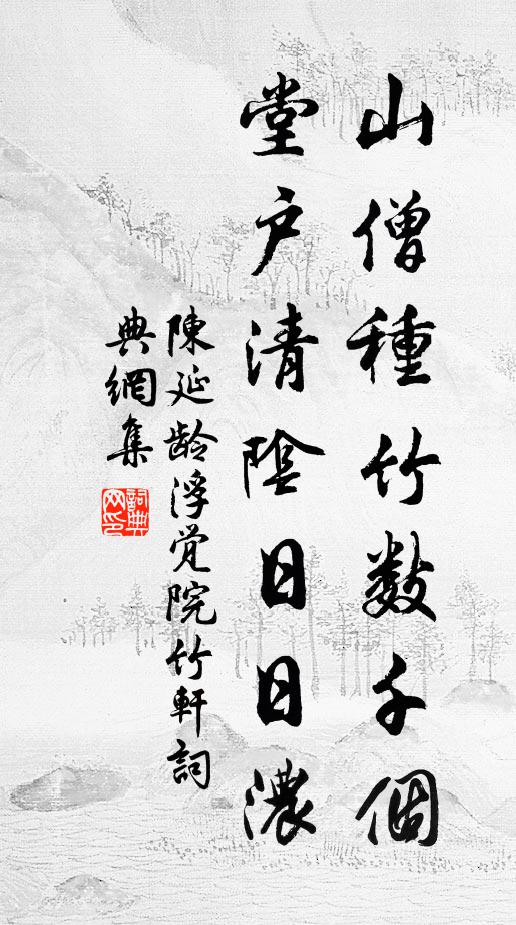 山僧種竹数千個
堂户清陰日日濃
陳延龄浮觉院竹軒詞
典網集
詞典网印